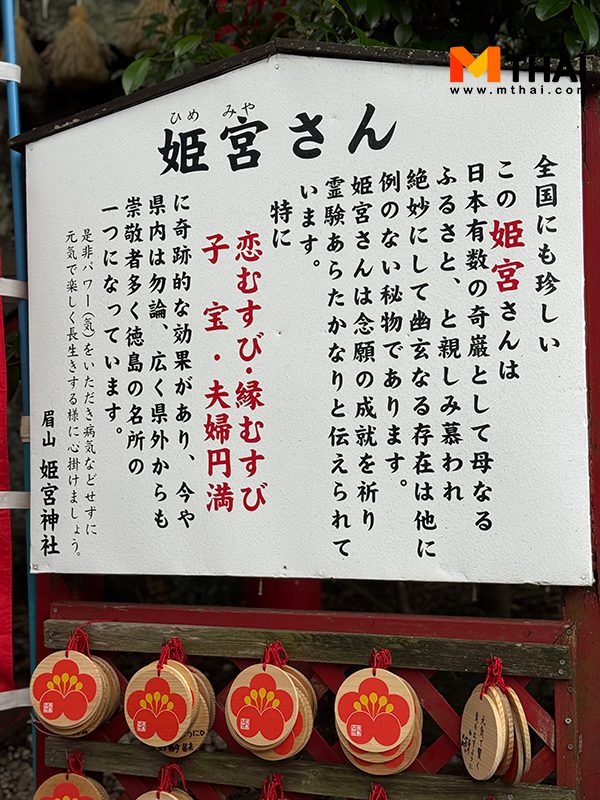 MTHAI
www.mthai.com
ひめ みや
姫宮さん
全国にも珍しい
この姫宮さんは
日本有数の奇巌として母なる
ふるさと、と親しみ慕われ
絶妙にして幽玄なる存在は他に
例のない秘物であります。
姫宮さんは念願の成就を祈り
霊験あらたかなりと伝えられて
います。
特に
恋むすび・縁むすび
子宝・夫婦円満
に奇跡的な効果があり、今や
県内は勿論、広く県外からも
崇敬者多く徳島の名所の
一つになっています。
是非パワー(気)をいただき病気などせずに
元気で楽しく長生きする様に心掛けましょう。
眉山 姫宮神社